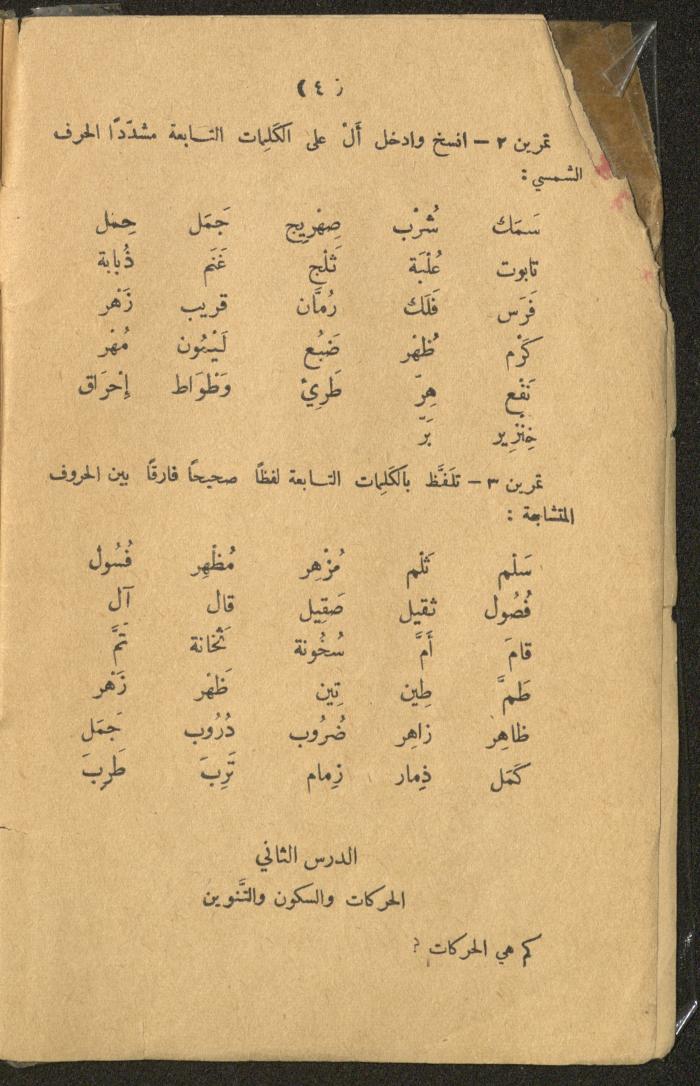 ( ٤ )
تمرين ٢ – انسخ وادخل أَلْ على الكَلِمات التابعة مشدّدًا الحرف
الشمسي :
سَمَك شُرْب صِهْرِيج جَمَل حِمْل
تابوت عُلْبَة ثَلْج غَنَم ذُبابة
فَرَس فَلَك رُمَّان قريب زَهْر
كَرْم ظُهْر ضَبُع لَيْمُون مُهْر
نَفْع هِرّ طَرِيْ وَطْوَاط إِحْرَاق
خِنْزِير بَرّ
تمرين ٣ – تلَفَّظ بالكَلِمات التابعة لفظًا صحيحًا فارقًا بين الحروف
المتشابهة :
سَلْم ثَلْم مُزْهِر مُظْهِر فُسُول
فُصُول ثقيل صَقِيل قال آل
قامَ أَمَّ سُخُونة ثَخانة تَمَّ
طَمَّ طِين تِين ظَهْر زَهْر
ظاهِر زاهِر ضُرُوب دُرُوب جَمَل
كَمَل ذِمار زِمام تَرِبَ طَرِبَ
الدرس الثاني
الحركات والسكون والتَّنوين
كم هي الحركات ؟